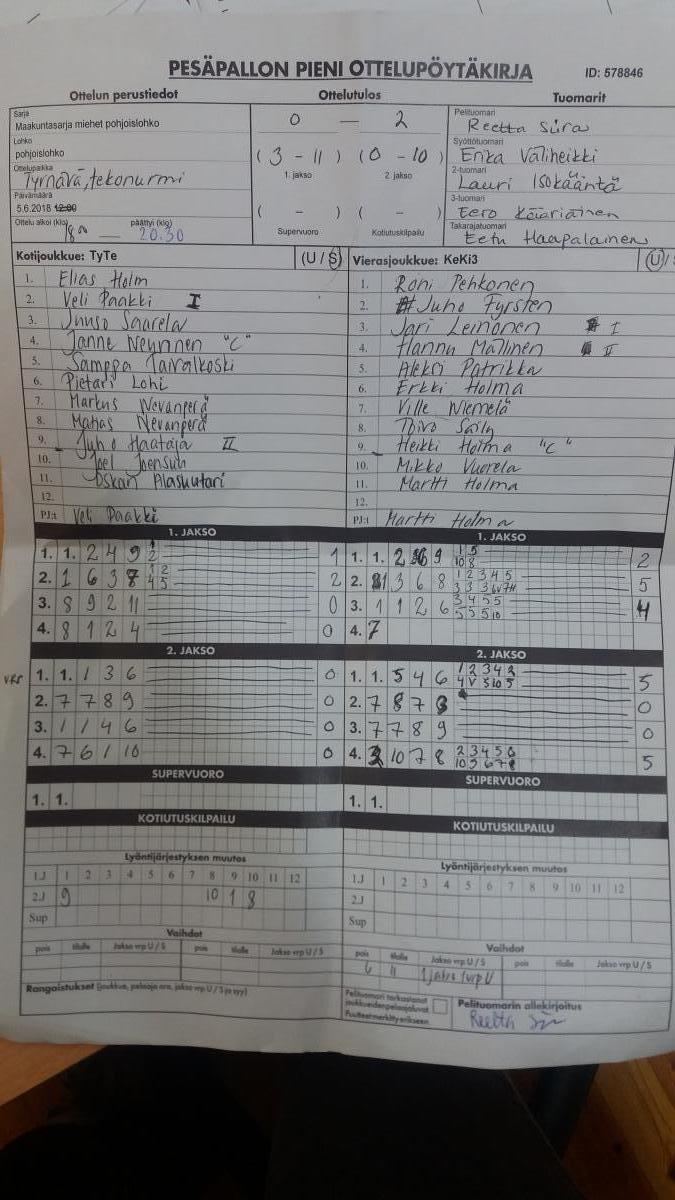 PESÄPALLON PIENI OTTELUPÖYTÄKIRJA
ID: 578846
Ottelun perustiedot
Ottelutulos
Tuomarit
Sarja
Maakuntasarja miehet pohjoislohko
Lohko
pohjoislohko
Ottelupaikka
Tyrnävä, tekonurmi
Päivämäärä
5.6.2018 12:00
Ottelu alkoi (klo) päättyi (klo)
18 00 — 20.30
0 — 2
( 3 - 11 ) ( 0 - 10 )
1. jakso 2. jakso
( - ) ( - )
Supervuoro Kotiutuskilpailu
Pelituomari
Reetta Siira
Syöttötuomari
Erika Väliheikki
2-tuomari
Lauri Isokääntä
3-tuomari
Eero Kääriäinen
Takarajatuomari
Eetu Haapalainen
Kotijoukkue: TyTe (U / S)
1. Elias Holm
2. Veli Paakki I
3. Juuso Saarela
4. Janne Neynnen "C"
5. Samppa Taivalkoski
6. Pietari Lohi
7. Markus Nevanperä
8. Matias Nevanperä
9. Juho Haataja II
10. Joel Joensuu
11. Oskari Alasuutari
12.
PJ:t Veli Paakki
Vierasjoukkue: KeKi3 (U / S)
1. Roni Pehkonen
2. Juho Fyrsten
3. Jari Leinonen I
4. Hannu Mällinen II
5. Aleksi Patrikka
6. Erkki Holma
7. Ville Niemelä
8. Toivo Saily
9. Heikki Holma "C"
10. Mikko Vuorela
11. Martti Holma
12.
PJ:t Martti Holma
1. JAKSO
1. 1. 2 4 9 1
2. 1 6 3 7 1 2 4 5 2
3. 8 9 2 11 0
4. 8 1 2 4 0
1. JAKSO
1. 1. 2 6 9 1 5 10 8 2
2. 1 3 6 8 1 2 3 4 5 5
3. 1 1 2 6 3 4 5 5 5 5 5 10 4
4. 7
2. JAKSO
VRS
1. 1. 1 3 6 0
2. 7 7 8 9 0
3. 1 1 4 6 0
4. 7 6 1 10 0
2. JAKSO
1. 1. 5 4 6 1 2 3 4 2 4 V 5 10 5 5
2. 7 8 7 8 0
3. 7 7 8 9 0
4. 2 10 7 8 2 3 4 5 6 10 5 6 7 8 5
SUPERVUORO
1. 1.
SUPERVUORO
1. 1.
KOTIUTUSKILPAILU
KOTIUTUSKILPAILU
Lyöntijärjestyksen muutos
1.J 1 2 3 4 5 6 7 8 9 10 11 12
2.J 9 10 1 8
Sup
Lyöntijärjestyksen muutos
1.J 1 2 3 4 5 6 7 8 9 10 11 12
2.J
Sup
Vaihdot
pois tilalle Jakso vrp U / S pois tilalle Jakso vrp U / S
Vaihdot
pois tilalle Jakso vrp U / S pois tilalle Jakso vrp U / S
6 11 1 jakso 1vrp U
Rangaistukset (joukkue, pelaaja nro, jakso vrp U / S ja syy)
Pelituomari tarkastanut
joukkueiden pelaajaluvat
Puutteet merkitty erikseen
Pelituomarin allekirjoitus
Reetta Siira